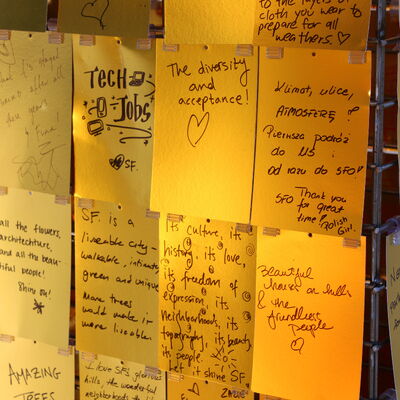 to the layers of
cloth you wear to
prepare for all
weathers.
TECH
JOBS
SF.
The diversity
and
acceptance!
Klimat, ulice,
ATMOSFERĘ!
Pierwsza podróż
do US i
od razu do SFO!
SFO Thank you
for great
time!
Polish
Girl.
all the flowers,
architechture,
and all the beau-
tiful people!
Shine on!
SF. is a
liveable city -
walkable, intimate
green and unique
More trees
would make it
more liveable.
Its culture, its
history, its love,
its freedom of
expression, its
neighborhoods, its
topography, its beauty,
its people.
Let it shine SF
Beautiful
houses on hills
& the
friendliest
people
AMAZING
TREES
I love SF's glorious
hills, the wonderful
neighborhoods